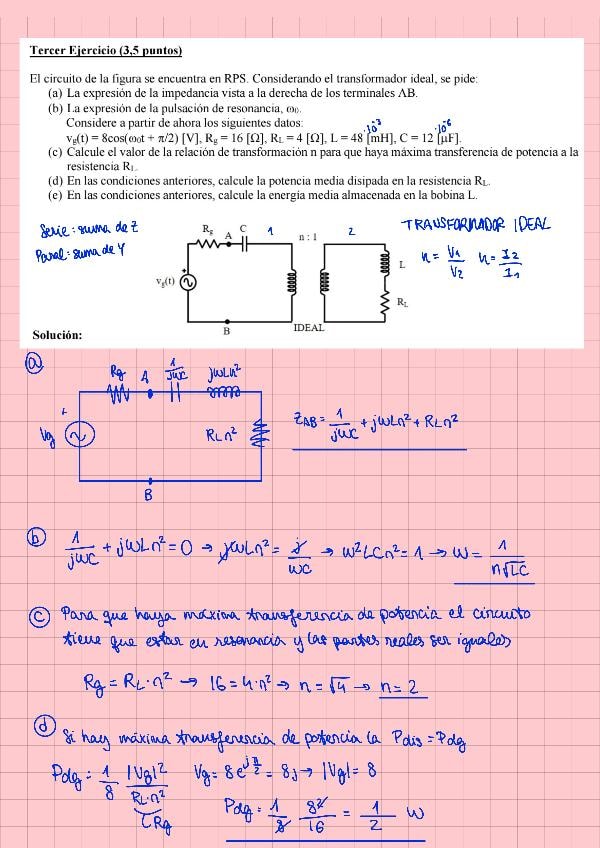 Tercer Ejercicio (3,5 puntos)
El circuito de la figura se encuentra en RPS. Considerando el transformador ideal, se pide:
(a) La expresión de la impedancia vista a la derecha de los terminales AB.
(b) La expresión de la pulsación de resonancia, ω₀.
Considere a partir de ahora los siguientes datos:
·10⁻³ ·10⁻⁶
v_g(t) = 8cos(ω₀t + π/2) [V], R_g = 16 [Ω], R_L = 4 [Ω], L = 48 [mH], C = 12 [μF].
(c) Calcule el valor de la relación de transformación n para que haya máxima transferencia de potencia a la
resistencia R_L.
(d) En las condiciones anteriores, calcule la potencia media disipada en la resistencia R_L.
(e) En las condiciones anteriores, calcule la energía media almacenada en la bobina L.
Serie: suma de Z
Paral: suma de Y
R_g A C 1 n : 1 2
L
R_L
v_g(t)
B IDEAL
TRANSFORMADOR IDEAL
n = V₁/V₂ n = I₂/I₁
Solución:
a
Rg A 1/jωC jωLn²
+
Vg
R_L n²
B
Z_AB = 1/jωC + jωLn² + R_L n²
b
1/jωC + jωLn² = 0 → jωLn² = j/ωC → ω²LCn² = 1 → ω = 1/n√LC
c Para que haya máxima transferencia de potencia el circuito
tiene que estar en resonancia y las partes reales ser iguales
Rg = R_L · n² → 16 = 4 · n² → n = √4 → n = 2
d
Si hay máxima transferencia de potencia la Pdis = Pdg
Pdg = 1/8 |Vg|²/R_L·n² Vg = 8e^(jπ/2) = 8j → |Vg| = 8
Rg
Pdg = 1/8 8²/16 = 1/2 W